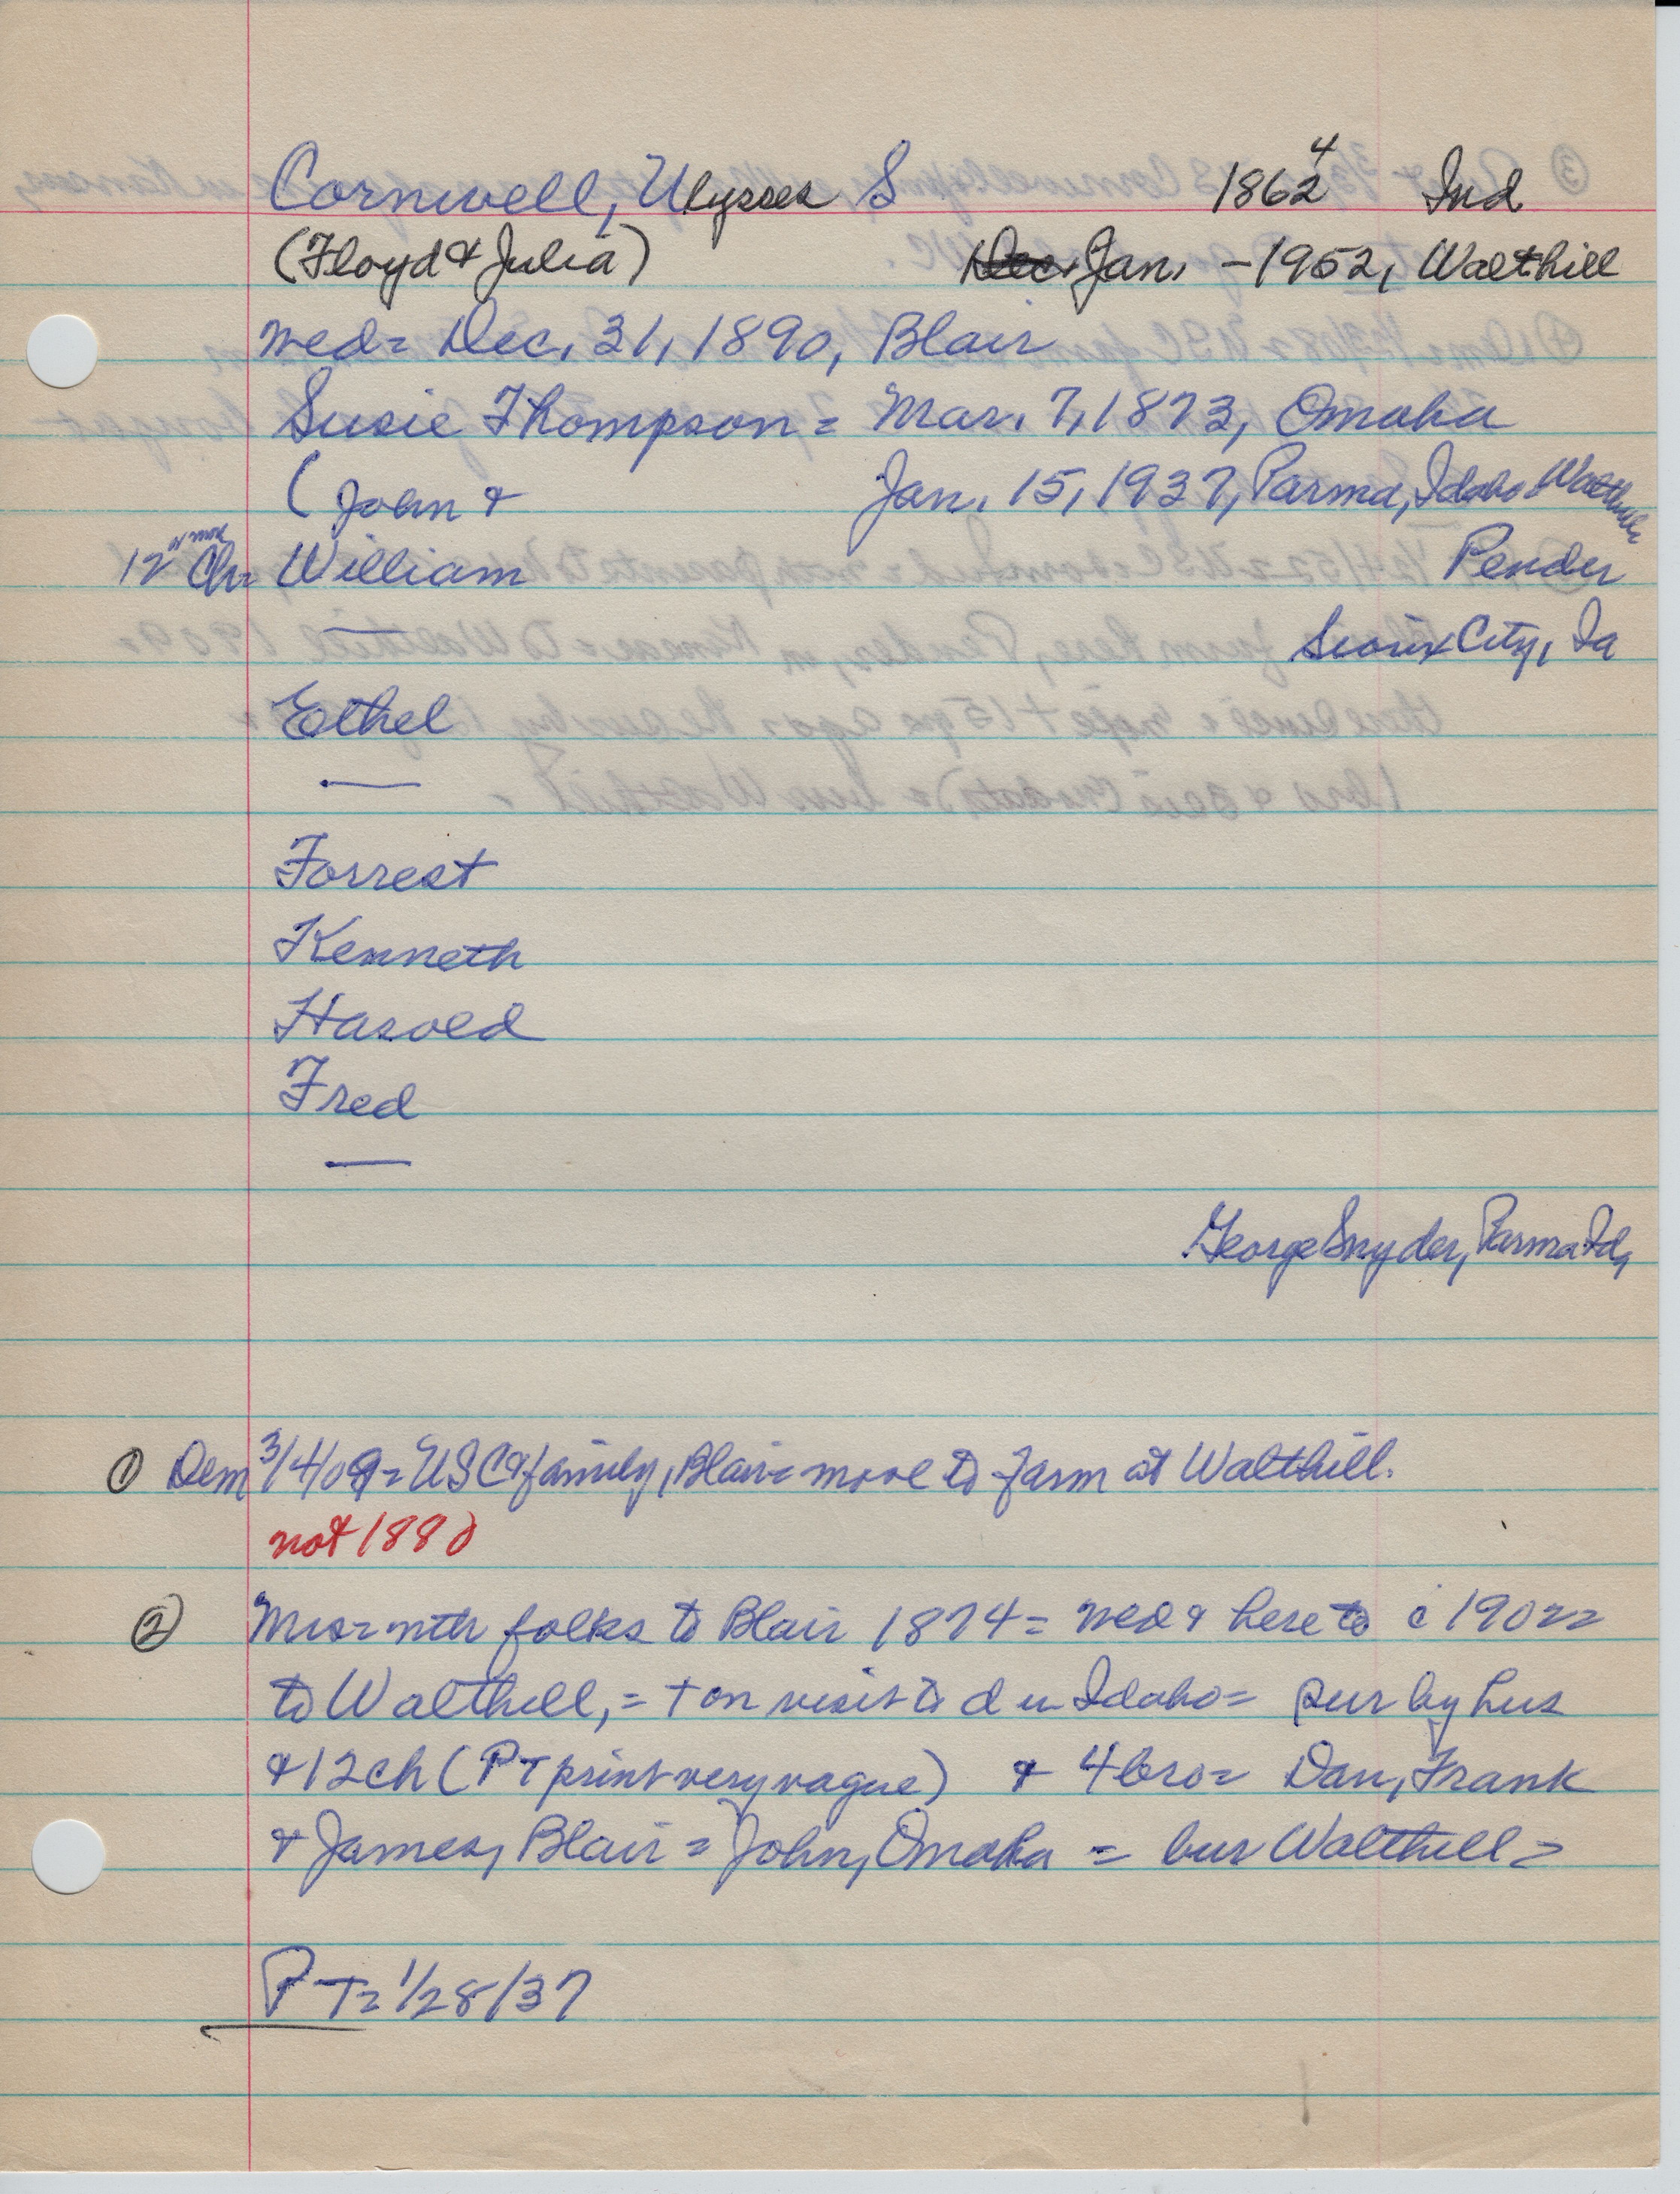 Cornwell, Ulysses S 1862 4 Ind
(Floyd & Julia) Dec. Jan. - 1952, Walthill
wed = Dec. 31, 1890, Blair
Susie Thompson = Mar. 7, 1873, Omaha
(John & Jan. 15, 1937, Parma, Idaho Walthill
12 Ch = William Pender
Sioux City, Ia
Ethel
Forrest
Kenneth
Harold
Fred
George Snyder, Parma Id,
① Dem 3/4/09 = USC & family, Blair = move to farm at Walthill.
not 1880
② Mrs = with folks to Blair 1874 = wed & here to c 1902 =
to Walthill, = + on visit to d in Idaho = sur by hus
& 12 ch (PT print very vague) & 4 bro = Dan, Frank
& James, Blair = John, Omaha = bur Walthill =
PT = 1/28/37